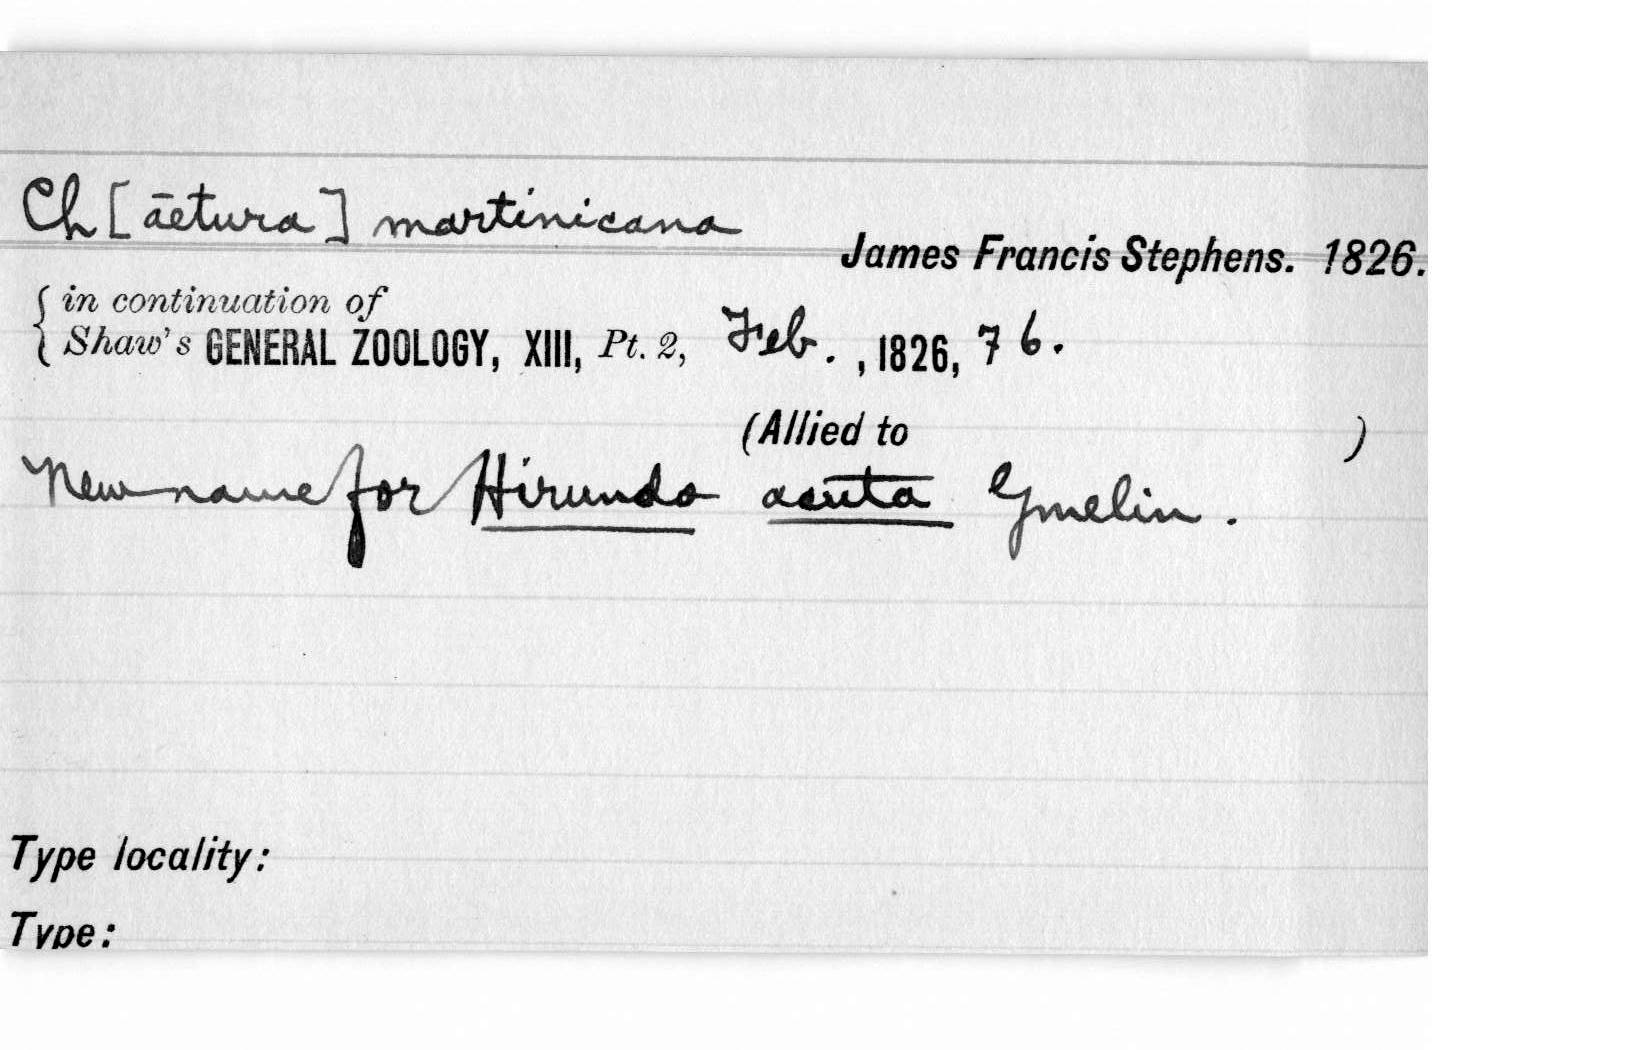 Ch[āetura] martinicana
James Francis Stephens. 1826.
{ in continuation of
Shaw's GENERAL ZOOLOGY, XIII, Pt. 2, Feb. , 1826, 76.
(Allied to )
New name for Hirundo acuta Gmelin.
Type locality:
Type: